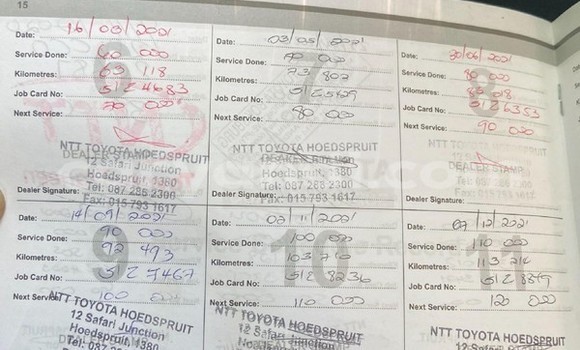 15
Date: 16/03/2021
Service Done: 60 000
Kilometres: 63 118
Job Card No: 5124683
Next Service: 70 000
NTT TOYOTA HOEDSPRUIT
DEALER STAMP
12 Safari Junction
Hoedspruit, 1380
Tel: 087 286 2300
Fax: 015 793 1617
Dealer Signature:
Date: 03/05/2021
Service Done: 70 000
Kilometres: 73 802
Job Card No:
Next Service: 80 000
NTT TOYOTA HOEDSPRUIT
DEALER STAMP
Hoedspruit, 1380
Tel: 087 286 2300
Fax: 015 793 1617
Dealer Signature:
8
Date: 30/06/2021
Service Done: 80 000
Kilometres: 85 018
Job Card No: 5126353
Next Service: 90 000
NTT TOYOTA HOEDSPRUIT
12 Safari Junction
DEALER STAMP
Hoedspruit, 1380
Tel: 087 286 2300
Fax: 015 793 1617
Dealer Signature:
9
Date: 14/09/2021
Service Done: 90 000
Kilometres: 92 493
Job Card No: 5127467
Next Service: 100 000
NTT TOYOTA HOEDSPRUIT
12 Safari Junction
Hoedspruit, 1380
Tel: 087
10
Date: 02/11/2021
Service Done: 100 000
Kilometres: 103 710
Job Card No: 5128236
Next Service: 110 000
NTT TOYOTA HOEDSPRUIT
12 Safari Junction
Date: 07/12/2021
Service Done: 110 000
Kilometres: 113 214
Job Card No: 5128849
Next Service: 120 000
NTT TOYOTA HOEDSPRUIT
12 Safari Junction